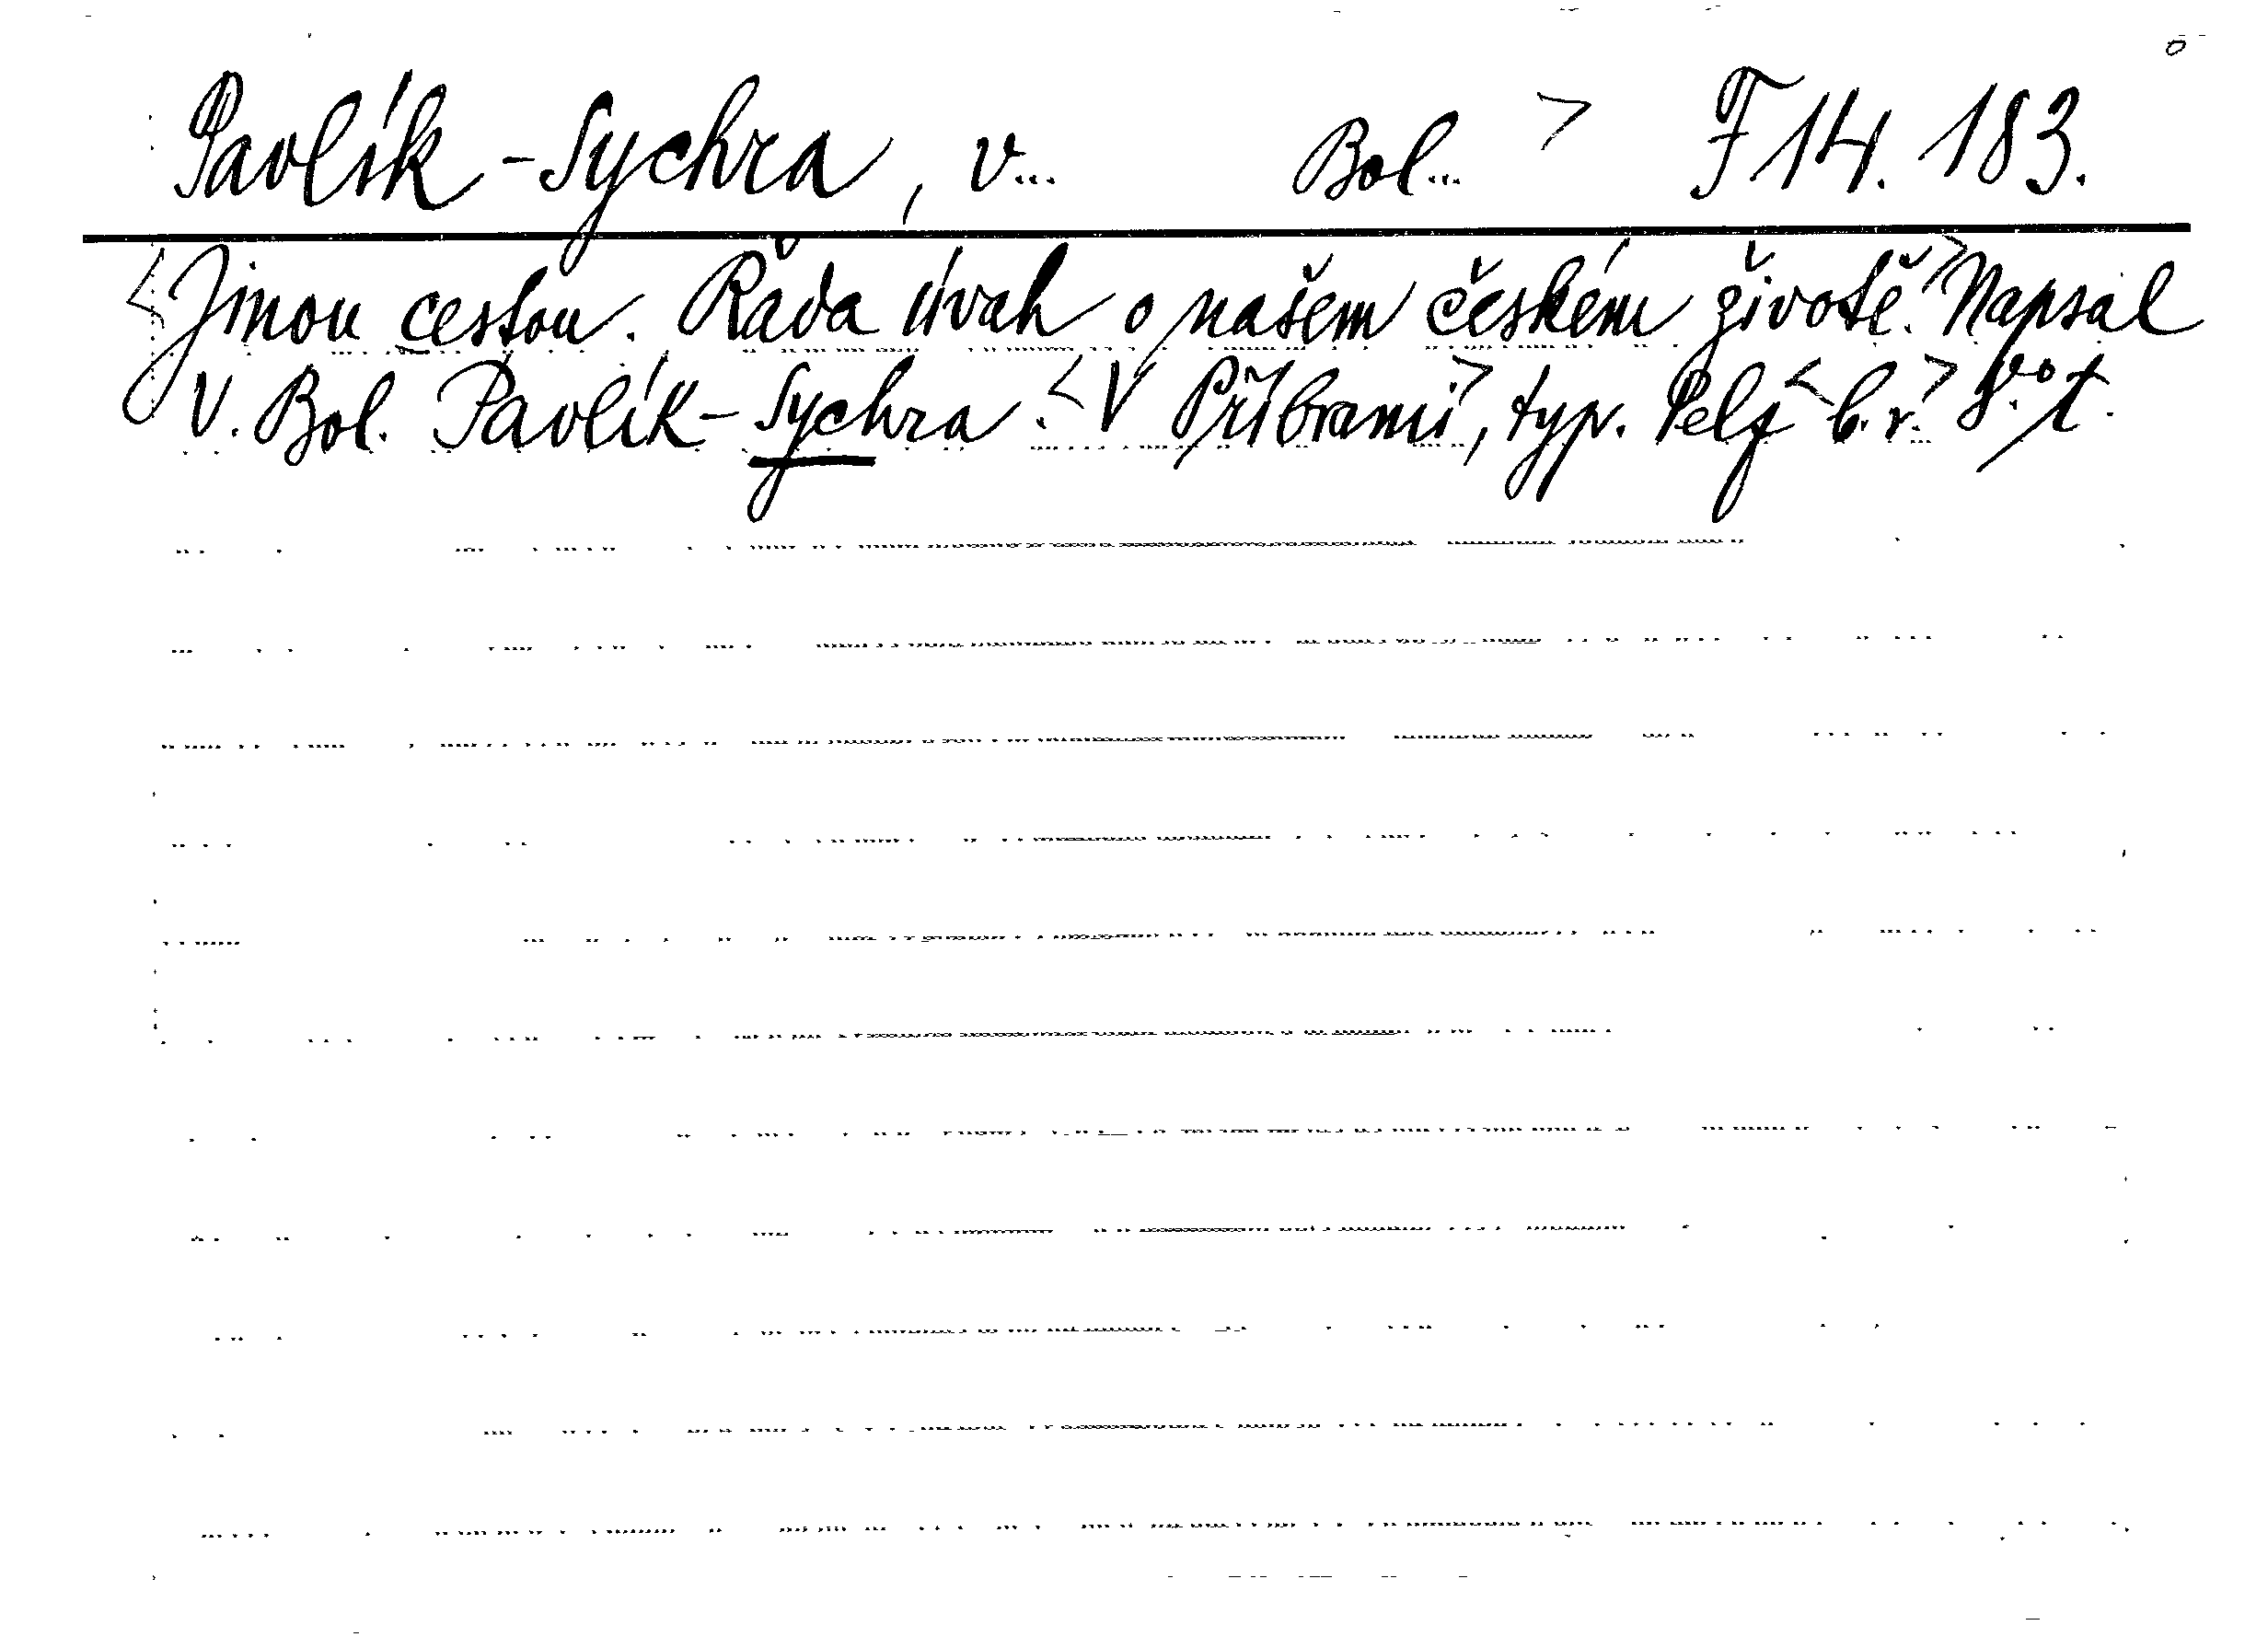 Pavlík-Sychra, V... Bol... > F 14.183.
<Jinou cestou. Řada úvah o našem českém životě.> Napsal
V. Bol. Pavlík-Sychra. <V Příbrami>, typ. Pelz <b.r.> 8°.